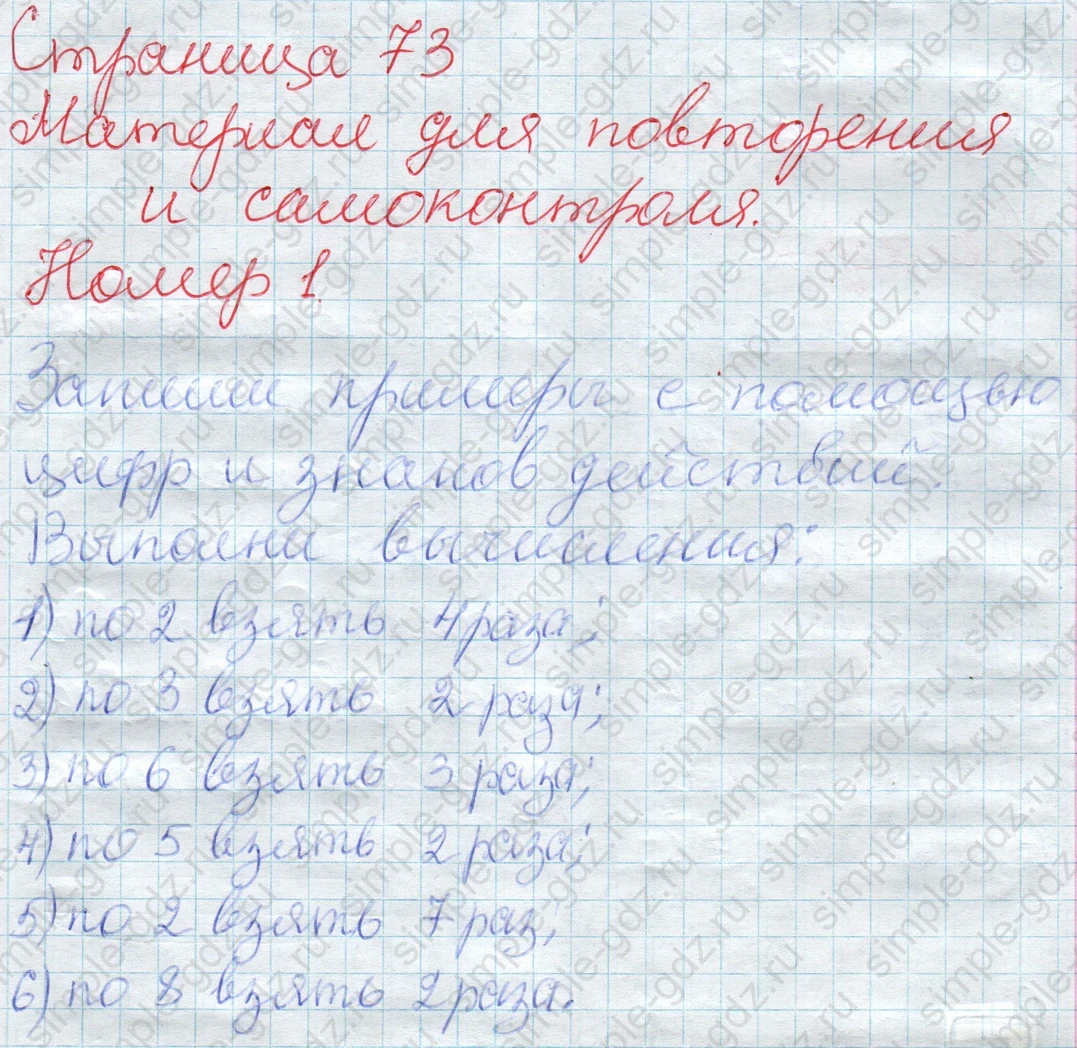 Страница 73
Материал для повторения
и самоконтроля.
Номер 1.
Запиши примеры с помощью
цифр и знаков действий.
Выполни вычисления:
1) по 2 взять 4 раза;
2) по 3 взять 2 раза;
3) по 6 взять 3 раза;
4) по 5 взять 2 раза;
5) по 2 взять 7 раз;
6) по 8 взять 2 раза.
simple-gdz.ru